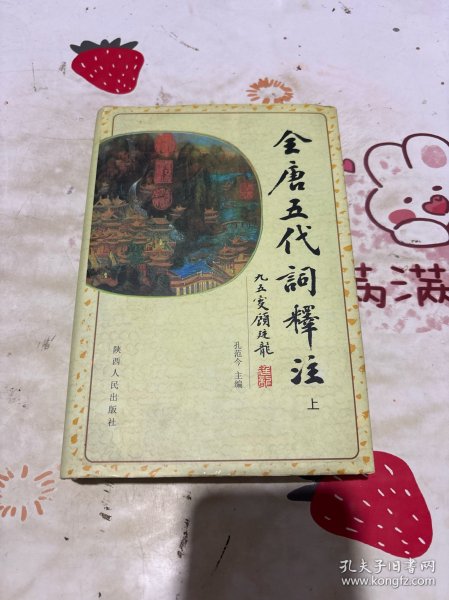 全唐五代詞釋注
上
九五叟顧廷龍
孔范今 主编
陕西人民出版社
满满
孔夫子旧书网
www.kongfz.com